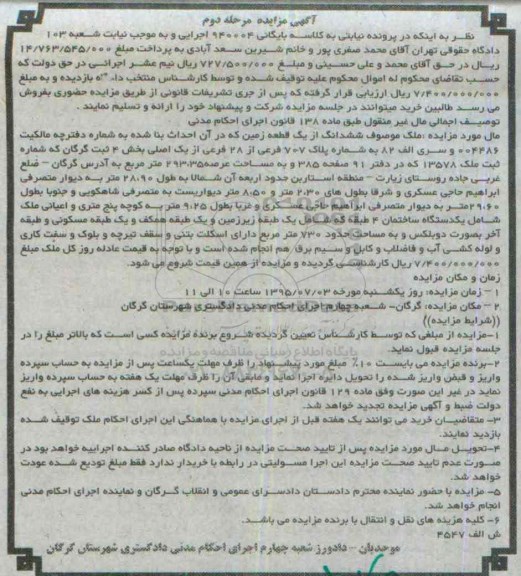 آگهی مزایده مرحله دوم
نظر به اینکه در پرونده نیابتی به کلاسه بایگانی ۹۴۰۰۰۴ اجرایی و به موجب نیابت شعبه ۱۰۳
دادگاه حقوقی تهران آقای محمد صفری پور و خانم شیرین سعد آبادی به پرداخت مبلغ ۱۴/۷۶۳/۵۴۵/۰۰۰
ریال در حق آقای محمد و علی حسینی و مبلغ ۷۲۷/۵۰۰/۰۰۰ ریال نیم عشر اجرائی در حق دولت که
حسب تقاضای محکوم له اموال محکوم علیه توقیف شده و توسط کارشناس منتخب دادگاه بازدید و به مبلغ
۷/۴۰۰/۰۰۰/۰۰۰ ریال ارزیابی قرار گرفته که پس از جری تشریفات قانونی از طریق مزایده حضوری بفروش
می رسد طالبین خرید میتوانند در جلسه مزایده شرکت و پیشنهاد خود را ارائه و تسلیم نمایند .
توصیف اجمالی مال غیر منقول طبق ماده ۱۳۸ قانون اجرای احکام مدنی
مال مورد مزایده :ملک موصوف ششدانگ از یک قطعه زمین که در آن احداث بنا شده به شماره دفترچه مالکیت
۰۰۴۴۸۶ و سری الف ۸۲ به شماره پلاک ۷۰۷ فرعی از ۲۸ فرعی از یک اصلی بخش ۴ ثبت گرگان که شماره
ثبت ملک ۱۳۵۷۸ که در دفتر ۹۱ صفحه ۳۸۵ و به مساحت عرصه۲۹۳.۳۵ متر مربع به آدرس گرگان – ضلع
غربی جاده روستای زیارت – منطقه استاربن حدود اربعه آن شمالا به طول ۲۸.۹۰ متر به دیوار متصرفی
ابراهیم حاجی عسکری و شرقا بطول های ۲.۳۰ متر و ۸.۵۰ متر دیواریست به متصرفی شاهکویی و جنوبا بطول
۲۹.۶۰متر به دیوار متصرفی ابراهیم حاجی عسکری و غربا بطول ۹.۲۵ متر به کوچه پنج متری و اعیانی ملک
شامل یکدستگاه ساختمان ۴ طبقه که شامل یک طبقه زیرزمین و یک طبقه همکف و یک طبقه مسکونی و طبقه
آخر بصورت دوبلکس و به مساحت حدود ۷۳۰ متر مربع دارای اسکلت بتنی و سقف تیرچه و بلوک و سفت کاری
و لوله کشی آب و فاضلاب و کابل و سیم برق هم انجام شده است و با توجه به قیمت عادله روز کل ملک مبلغ
۷/۴۰۰/۰۰۰/۰۰۰ ریال کارشناسی گردیده و مزایده از همین قیمت شروع می شود.
زمان و مکان مزایده
۱ – زمان مزایده: روز یکشنبه مورخه ۱۳۹۵/۰۷/۰۳ ساعت ۱۰ الی ۱۱
۲ – مکان مزایده: گرگان- شعبه چهارم اجرای احکام مدنی دادگستری شهرستان گرگان
((شرایط مزایده))
۱–مزایده از مبلغی که توسط کارشناس تعیین گردیده شروع برنده مزایده کسی است که بالاتر مبلغ را در
جلسه مزایده قبول نماید.
۲–برنده مزایده می بایست ۱۰٪ مبلغ مورد پیشنهاد را ظرف مهلت یکساعت پس از مزایده به حساب سپرده
واریز و قبض واریز شده را تحویل دایره اجرا نماید و مابقی آن را ظرف مهلت یک هفته به حساب سپرده واریز
نماید در غیر این صورت وفق ماده ۱۲۹ قانون اجرای احکام مدنی سپرده پس از کسر هزینه های اجرایی به نفع
دولت ضبط و آگهی مزایده تجدید خواهد شد.
۳– متقاضیان خرید می توانند یک هفته قبل از اجرای مزایده با هماهنگی این اجرای احکام ملک توقیف شده
بازدید نمایند.
۴–تحویل مال مورد مزایده پس از تایید صحت مزایده از ناحیه دادگاه صادر کننده اجراییه خواهد بود در
صورت عدم تایید صحت مزایده این اجرا مسولیتی در رابطه با خریدار ندارد فقط مبلغ تودیع شده عودت
خواهد شد.
۵– مزایده با حضور نماینده محترم دادستان دادسرای عمومی و انقلاب گرگان و نماینده اجرای احکام مدنی
انجام خواهد شد.
۶– کلیه هزینه های نقل و انتقال با برنده مزایده می باشد.
ش الف ۴۵۴۷
موحدیان – دادورز شعبه چهارم اجرای احکام مدنی دادگستری شهرستان گرگان